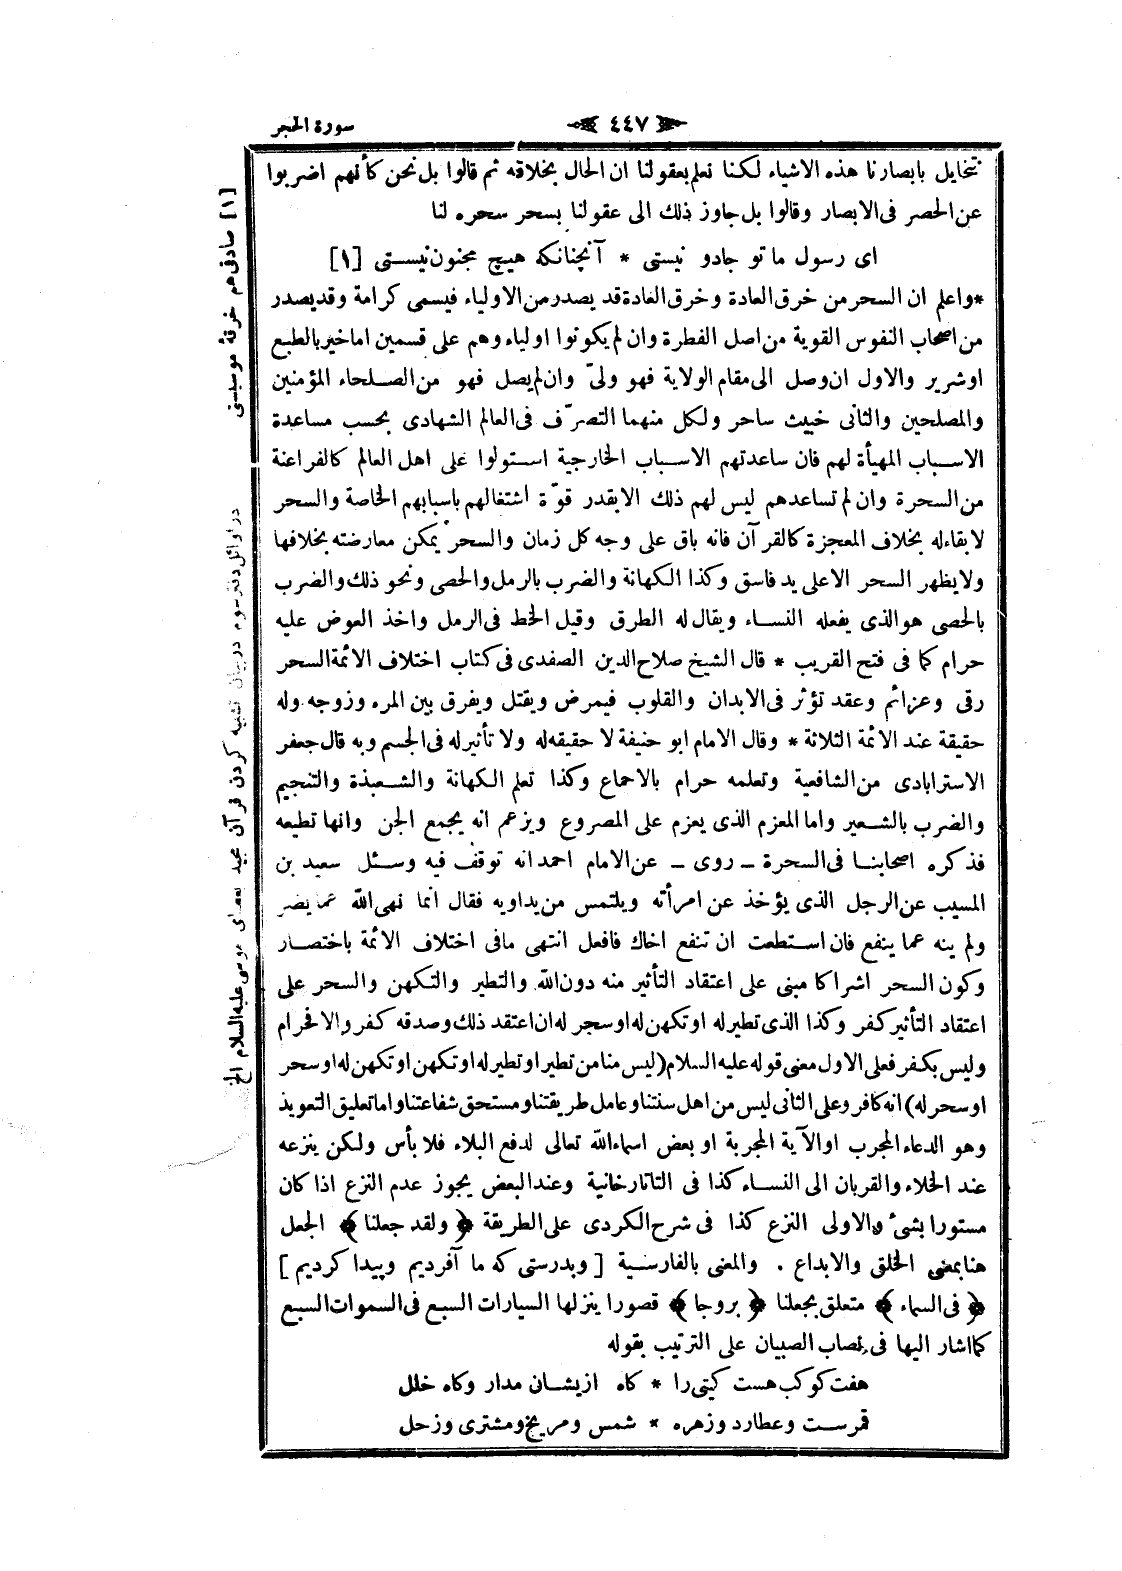 سورة الحجر
﴿ ٤٤٧ ﴾
نتخايل بابصارنا هذه الاشياء لكنا نعلم بعقولنا ان الحال بخلافه ثم قالوا بل نحن كأنهم اضربوا
عن الحصر فى الابصار وقالوا بل جاوز ذلك الى عقولنا بسحر سحره لنا
اى رسول ما تو جادو نيستى * آنچنانكه هيچ مجنون نيستى [١]
*واعلم ان السحر من خرق العادة وخرق العادة قد يصدر من الاولياء فيسمى كرامة وقد يصدر
من اصحاب النفوس القوية من اصل الفطرة وان لم يكونوا اولياء وهم على قسمين اما خير بالطبع
او شرير والاول ان وصل الى مقام الولاية فهو ولىّ وان لم يصل فهو من الصلحاء المؤمنين
والمصلحين والثانى خبيث ساحر ولكل منهما التصرّف فى العالم الشهادى بحسب مساعدة
الاسباب المهيأة لهم فان ساعدتهم الاسباب الخارجية استولوا على اهل العالم كالفراعنة
من السحرة وان لم تساعدهم ليس لهم ذلك الا بقدر قوّة اشتغالهم باسبابهم الخاصة والسحر
لا بقاء له بخلاف المعجزة كالقرآن فانه باق على وجه كل زمان والسحر يمكن معارضته بخلافها
ولا يظهر السحر الا على يد فاسق وكذا الكهانة والضرب بالرمل والحصى ونحو ذلك والضرب
بالحصى هو الذى يفعله النساء ويقال له الطرق وقيل الخط فى الرمل واخذ العوض عليه
حرام كما فى فتح القريب * قال الشيخ صلاح الدين الصفدى فى كتاب اختلاف الائمة السحر
رقى وعزائم وعقد تؤثر فى الابدان والقلوب فيمرض ويقتل ويفرق بين المرء وزوجه وله
حقيقة عند الائمة الثلاثة * وقال الامام ابو حنيفة لا حقيقه له ولا تأثير له فى الجسم وبه قال جعفر
الاسترابادى من الشافعية وتعلمه حرام بالاجماع وكذا تعلم الكهانة والشعبذة والتنجيم
والضرب بالشعير واما المعزم الذى يعزم على المصروع ويزعم انه يجمع الجن وانها تطيعه
فذكره اصحابنا فى السحرة ـ روى ـ عن الامام احمد انه توقف فيه وسئل سعيد بن
المسيب عن الرجل الذى يؤخذ عن امرأته ويلتمس من يداويه فقال انما نهى الله عما يضر
ولم ينه عما ينفع فان استطعت ان تنفع اخاك فافعل انتهى ما فى اختلاف الائمة باختصار
وكون السحر اشراكا مبنى على اعتقاد التأثير منه دون الله والتطير والتكهن والسحر على
اعتقاد التأثير كفر وكذا الذى تطير له او تكهن له او سحر له ان اعتقد ذلك وصدقه كفر والا فحرام
وليس بكفر فعلى الاول معنى قوله عليه السلام (ليس منا من تطير او تطير له او تكهن او تكهن له او سحر
او سحر له) انه كافر وعلى الثانى ليس من اهل سنتنا وعامل طريقتنا ومستحق شفاعتنا واما تعليق التعويذ
وهو الدعاء المجرب او الآية المجربة او بعض اسماء الله تعالى لدفع البلاء فلا بأس ولكن ينزعه
عند الخلاء والقربان الى النساء كذا فى التاتارخانية وعند البعض يجوز عدم النزع اذا كان
مستورا بشىء والاولى النزع كذا فى شرح الكردى على الطريقة ﴿ ولقد جعلنا ﴾ الجعل
هنا بمعنى الخلق والابداع . والمعنى بالفارسية [ وبدرستى كه ما آفرديم وپيدا كرديم ]
﴿ فى السماء ﴾ متعلق بجعلنا ﴿ بروجا ﴾ قصورا ينزلها السيارات السبع فى السموات السبع
كما اشار اليها فى نصاب الصبيان على الترتيب بقوله
هفت كوكب هست كيتى را * كاه ازيشان مدار وكاه خلل
قمرست وعطارد وزهره * شمس ومريخ ومشترى وزحل
[١] صادقى هم خرقهٔ موسيستى
در اوائل دفتر سوم در بيان تشبيه كردن قرآن مجيد بعصاى موسى عليه السلام الخ